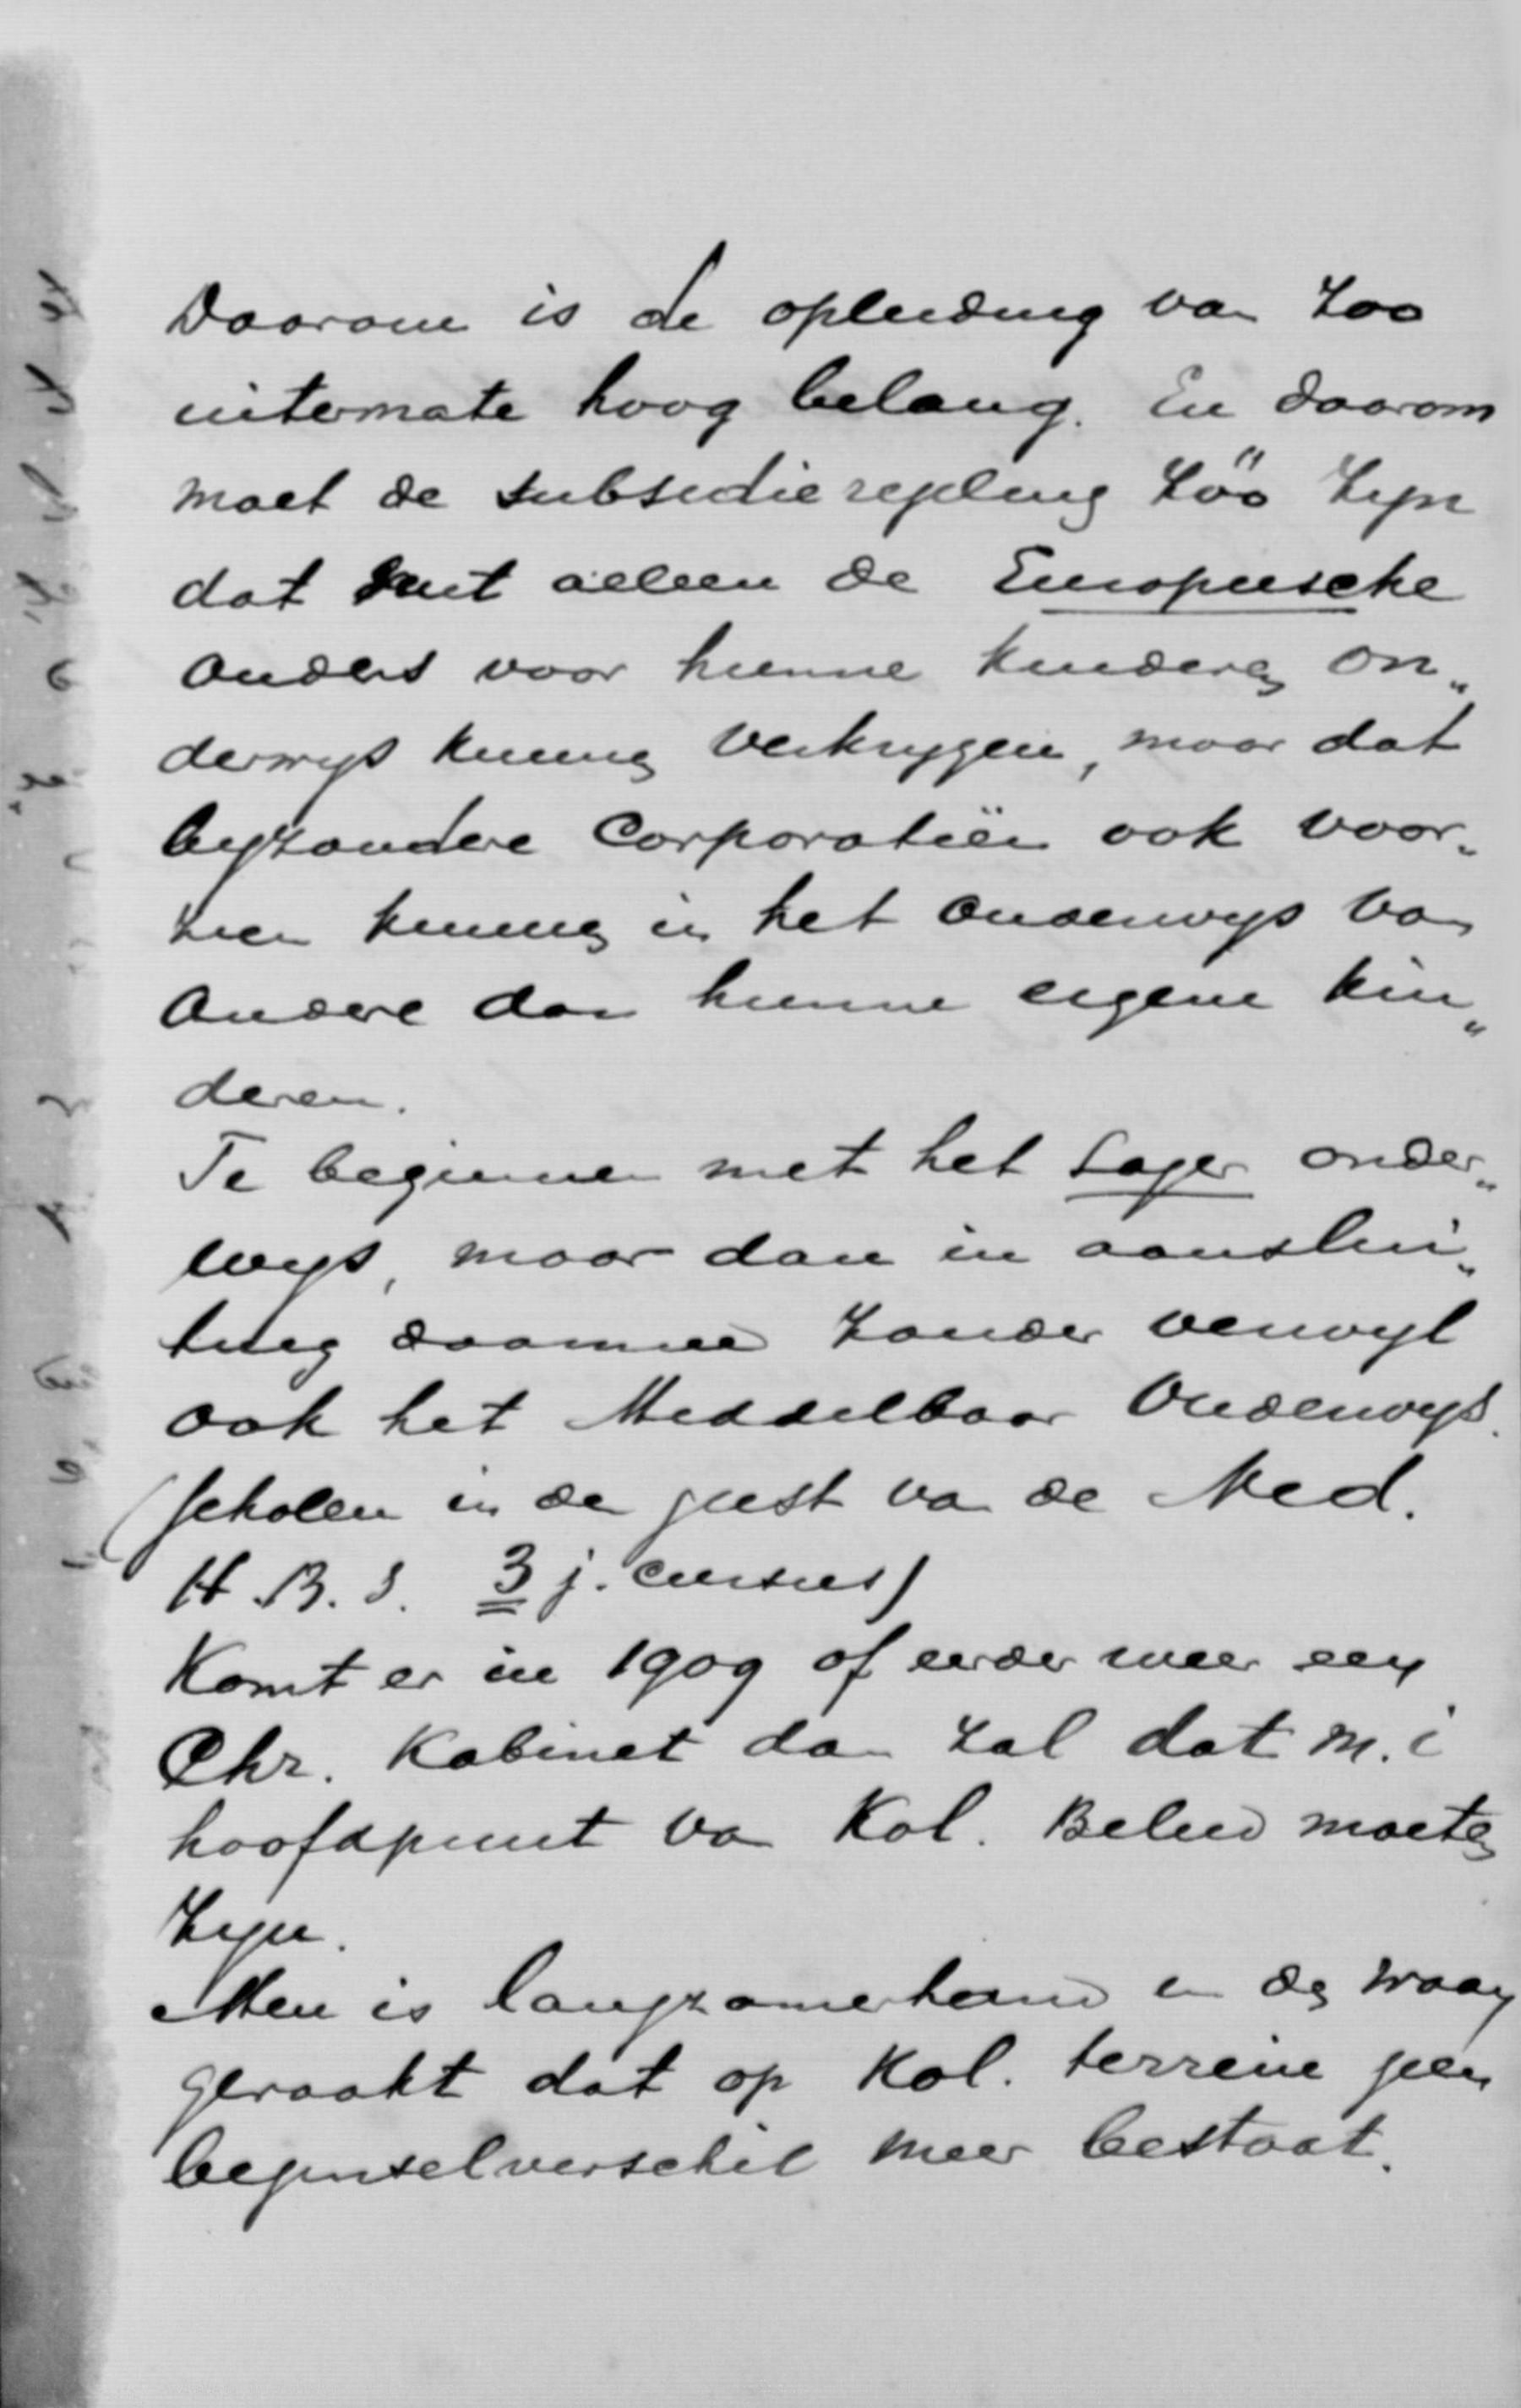 Daarom is de opleiding van zoo
uitermate hoog belang. En daarom
moet de subsidieregeling zóó zijn
dat niet alleen de Europeesche
ouders voor hunne kinderen on„
derwijs kunnen verkrijgen, maar dat
bijzondere Corporatiën ook voor„
zien kunnen in het onderwijs van
andere dan hunne eigene kin„
deren.
Te beginnen met het Lager onder„
wijs, maar dan in aanslui„
ting daarmee zonder verwijl
ook het Middelbaar Onderwijs.
(Scholen in den geest van de Ned.
H.B.S. 3 j. cursus)
Komt er in 1909 of eerder weer een
Chr. Kabinet dan zal dat m.i
hoofdpunt van Kol. Beleid moeten
zijn.
Men is langzamerhand in den waan
geraakt dat op Kol. terrein geen
beginselverschil meer bestaat.